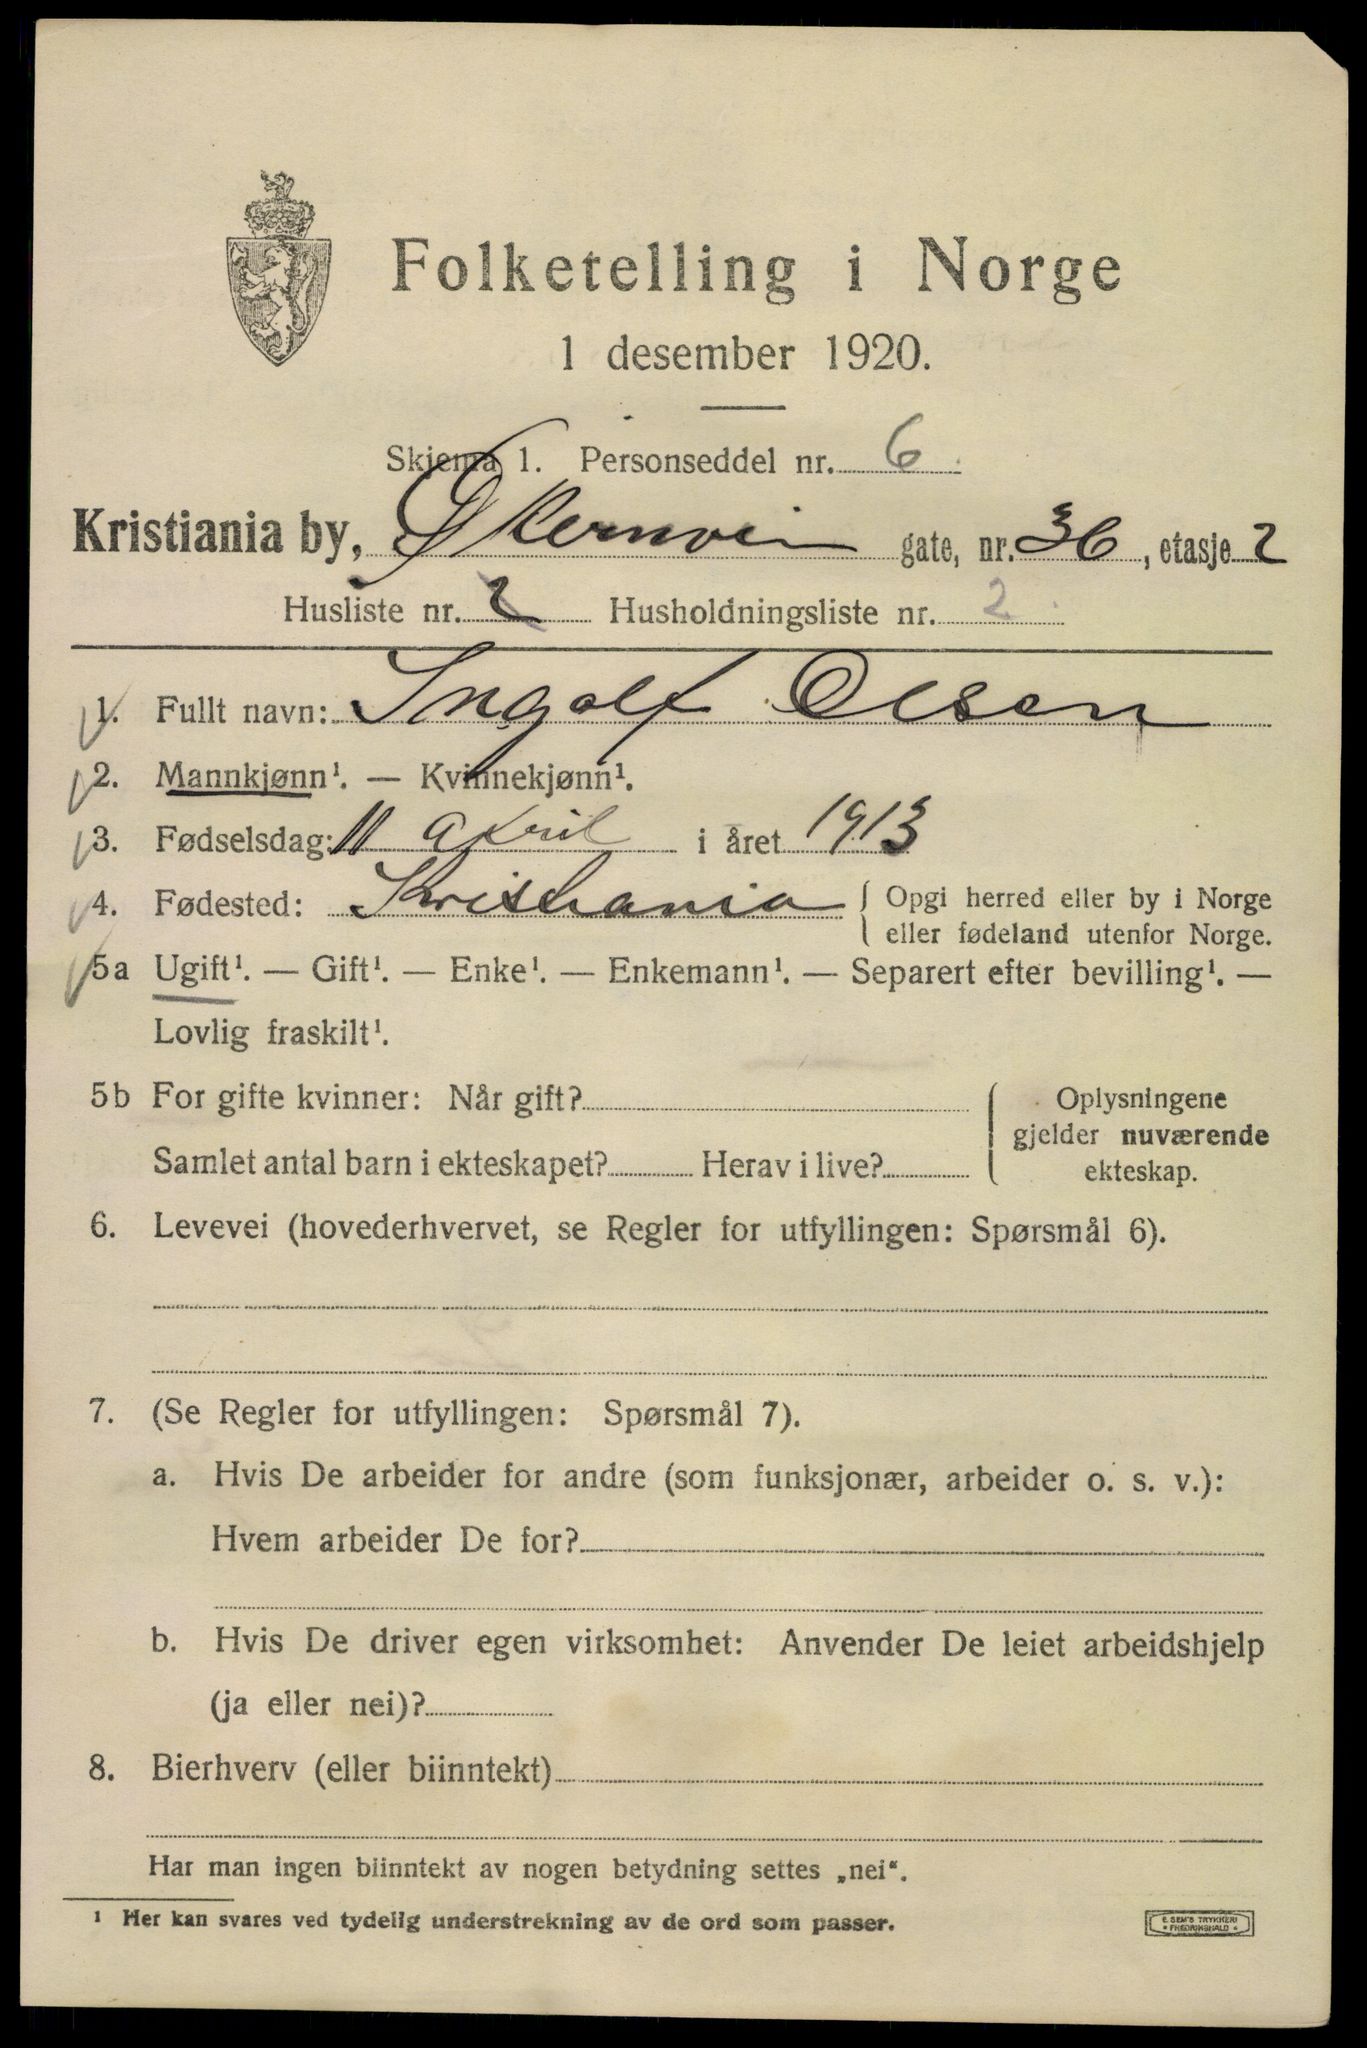 Folketelling i Norge
1 desember 1920.
Skjema 1. Personseddel nr. 6
Kristiania by, Økernvei gate, nr. 36, etasje 2
Husliste nr. 2 Husholdningsliste nr. 2
1. Fullt navn: Ingolf Olsen
2. Mannkjønn¹. — Kvinnekjønn¹.
3. Fødselsdag: 11 april i året 1913
4. Fødested: Kristiania { Opgi herred eller by i Norge
eller fødeland utenfor Norge.
5a Ugift¹. — Gift¹. — Enke¹. — Enkemann¹. — Separert efter bevilling¹. —
Lovlig fraskilt¹.
5b For gifte kvinner: Når gift? { Oplysningene
gjelder nuværende
Samlet antal barn i ekteskapet? Herav i live? ekteskap.
6. Levevei (hovederhvervet, se Regler for utfyllingen: Spørsmål 6).
7. (Se Regler for utfyllingen: Spørsmål 7).
a. Hvis De arbeider for andre (som funksjonær, arbeider o. s. v.):
Hvem arbeider De for?
b. Hvis De driver egen virksomhet: Anvender De leiet arbeidshjelp
(ja eller nei)?
8. Bierhverv (eller biinntekt)
Har man ingen biinntekt av nogen betydning settes „nei“.
¹ Her kan svares ved tydelig understrekning av de ord som passer.
E. SEM'S TRYKKERI
* FREDRIKSHALD *